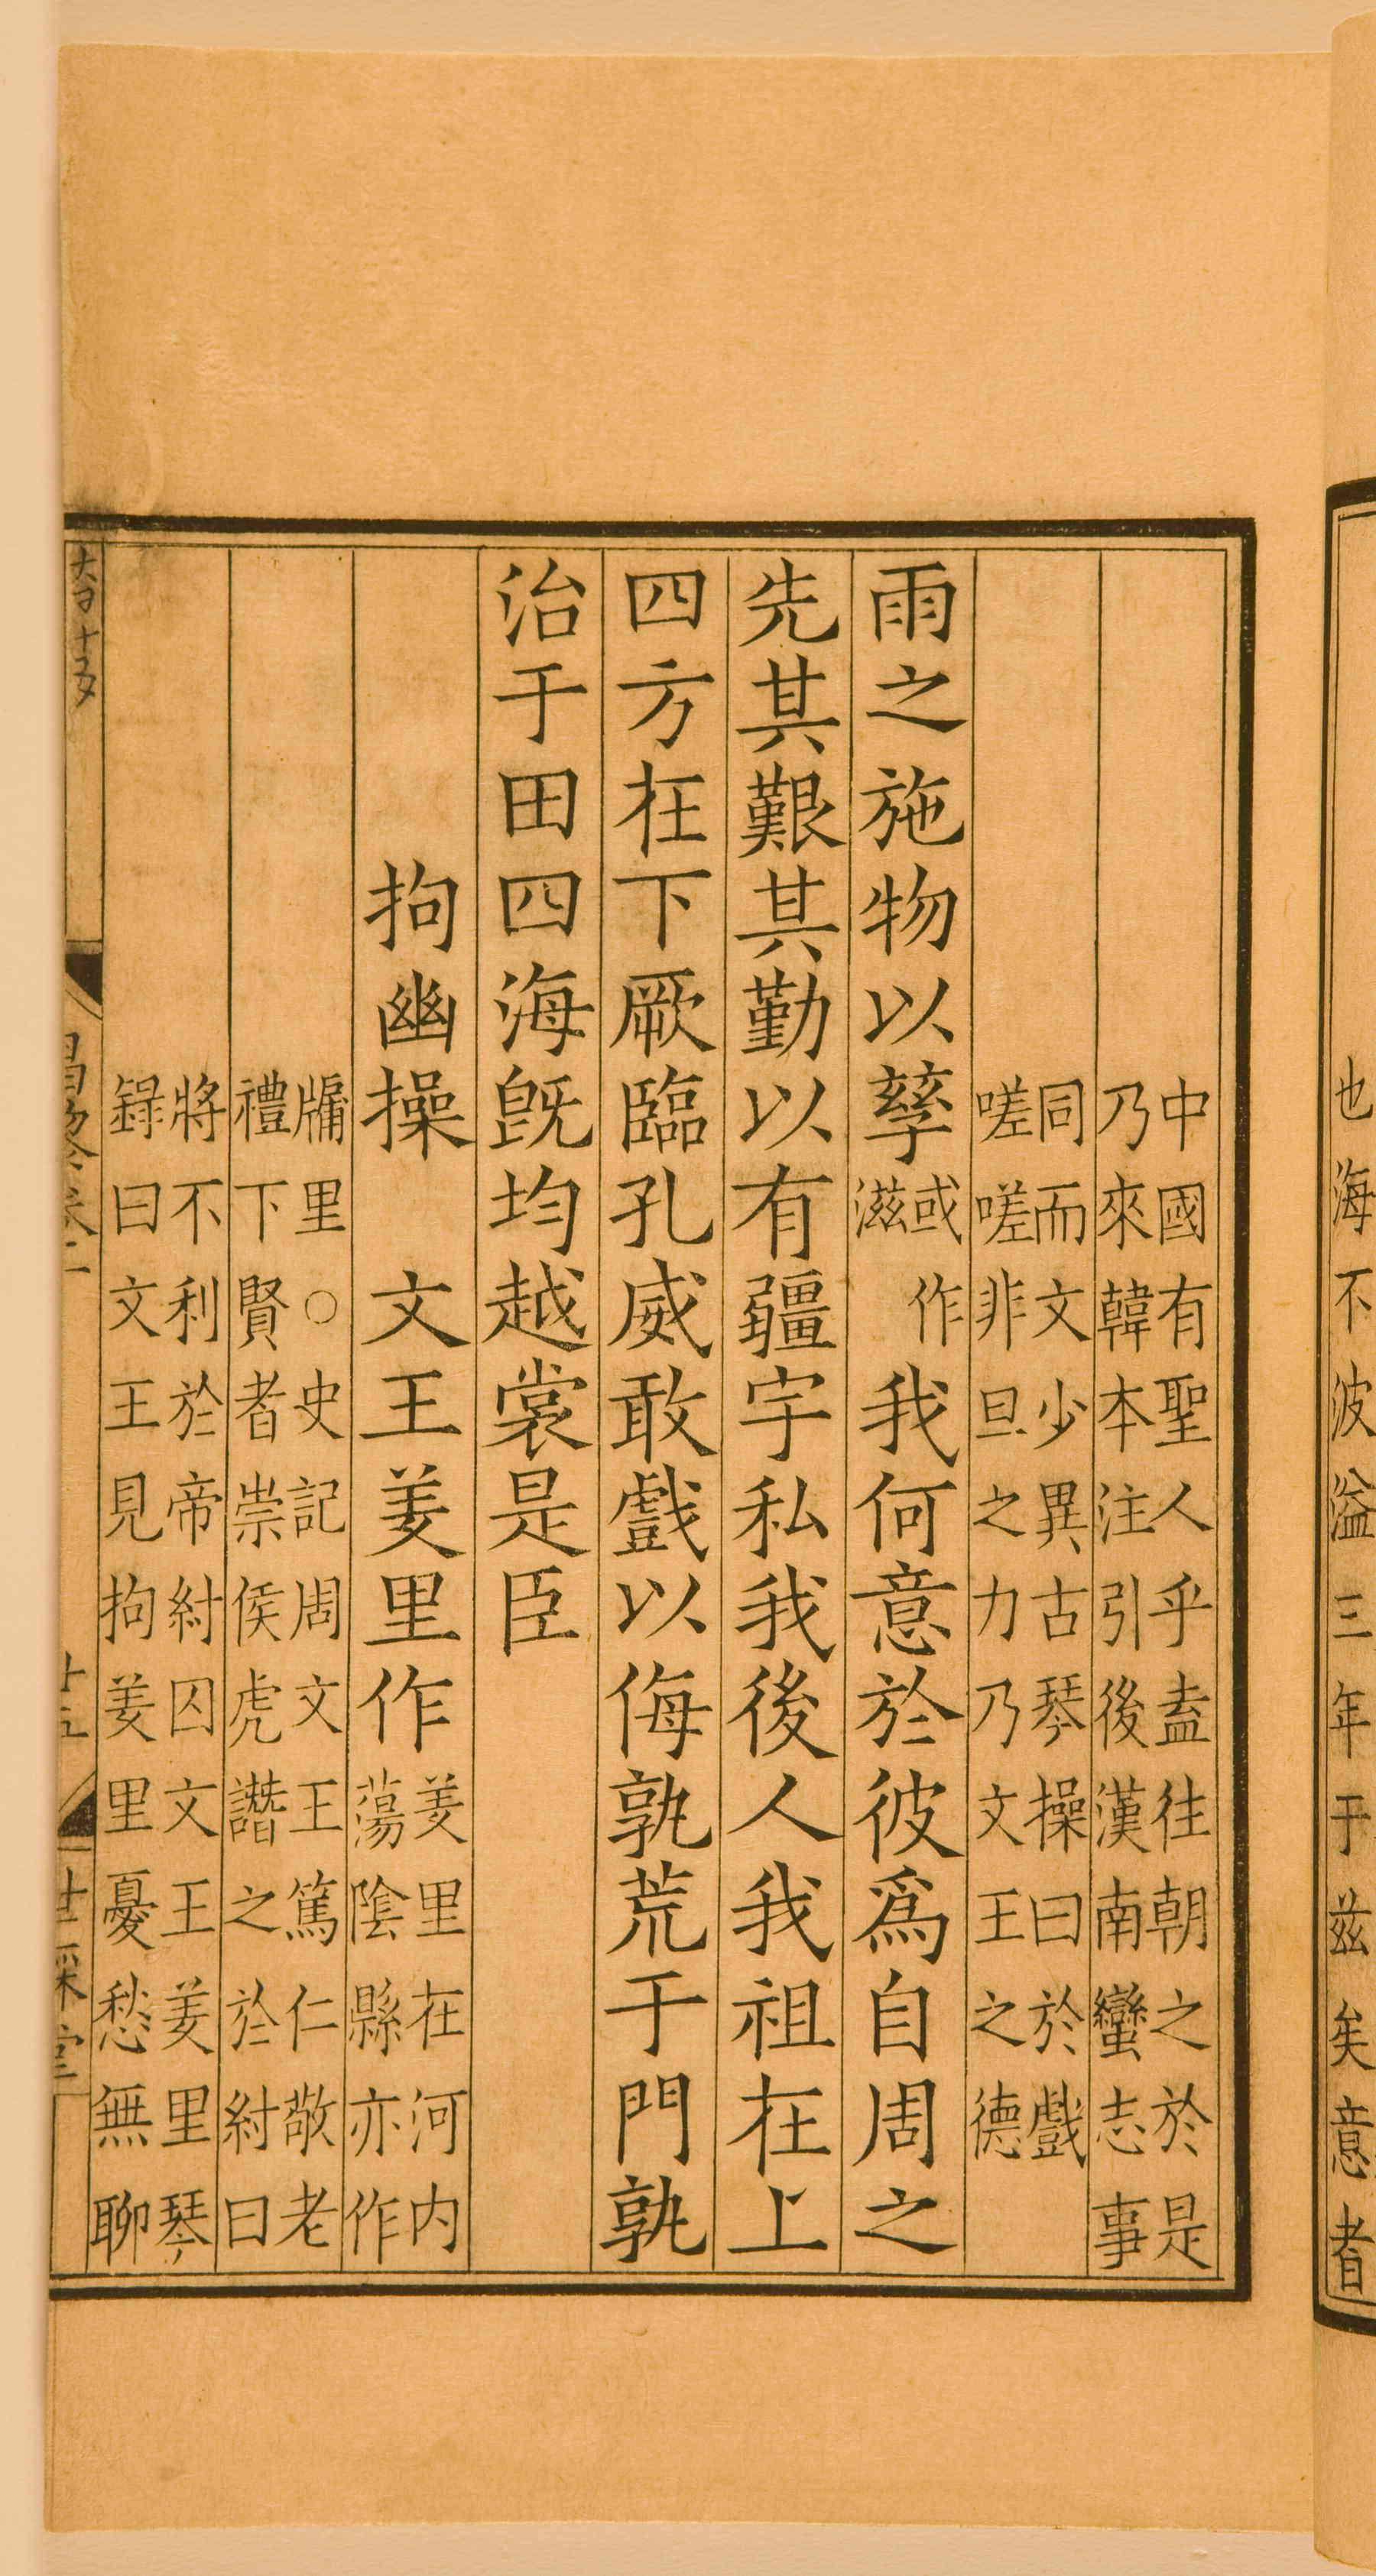 也海不波溢三年于兹矣意者
中國有聖人乎盍往朝之於是
乃來韓本注引後漢南蠻志事
同而文少異古琴操曰於戲
嗟嗟非旦之力乃文王之德
雨之施物以孳或作滋我何意於彼爲自周之
先其艱其勤以有疆宇私我後人我祖在上
四方在下厥臨孔威敢戲以侮孰荒于門孰
治于田四海旣均越裳是臣
拘幽操 文王羑里作羑里在河内蕩陰縣亦作
牖里○史記周文王篤仁敬老
禮下賢者崇侯虎譖之於紂曰
將不利於帝紂囚文王羑里琴
録曰文王見拘羑里憂愁無聊